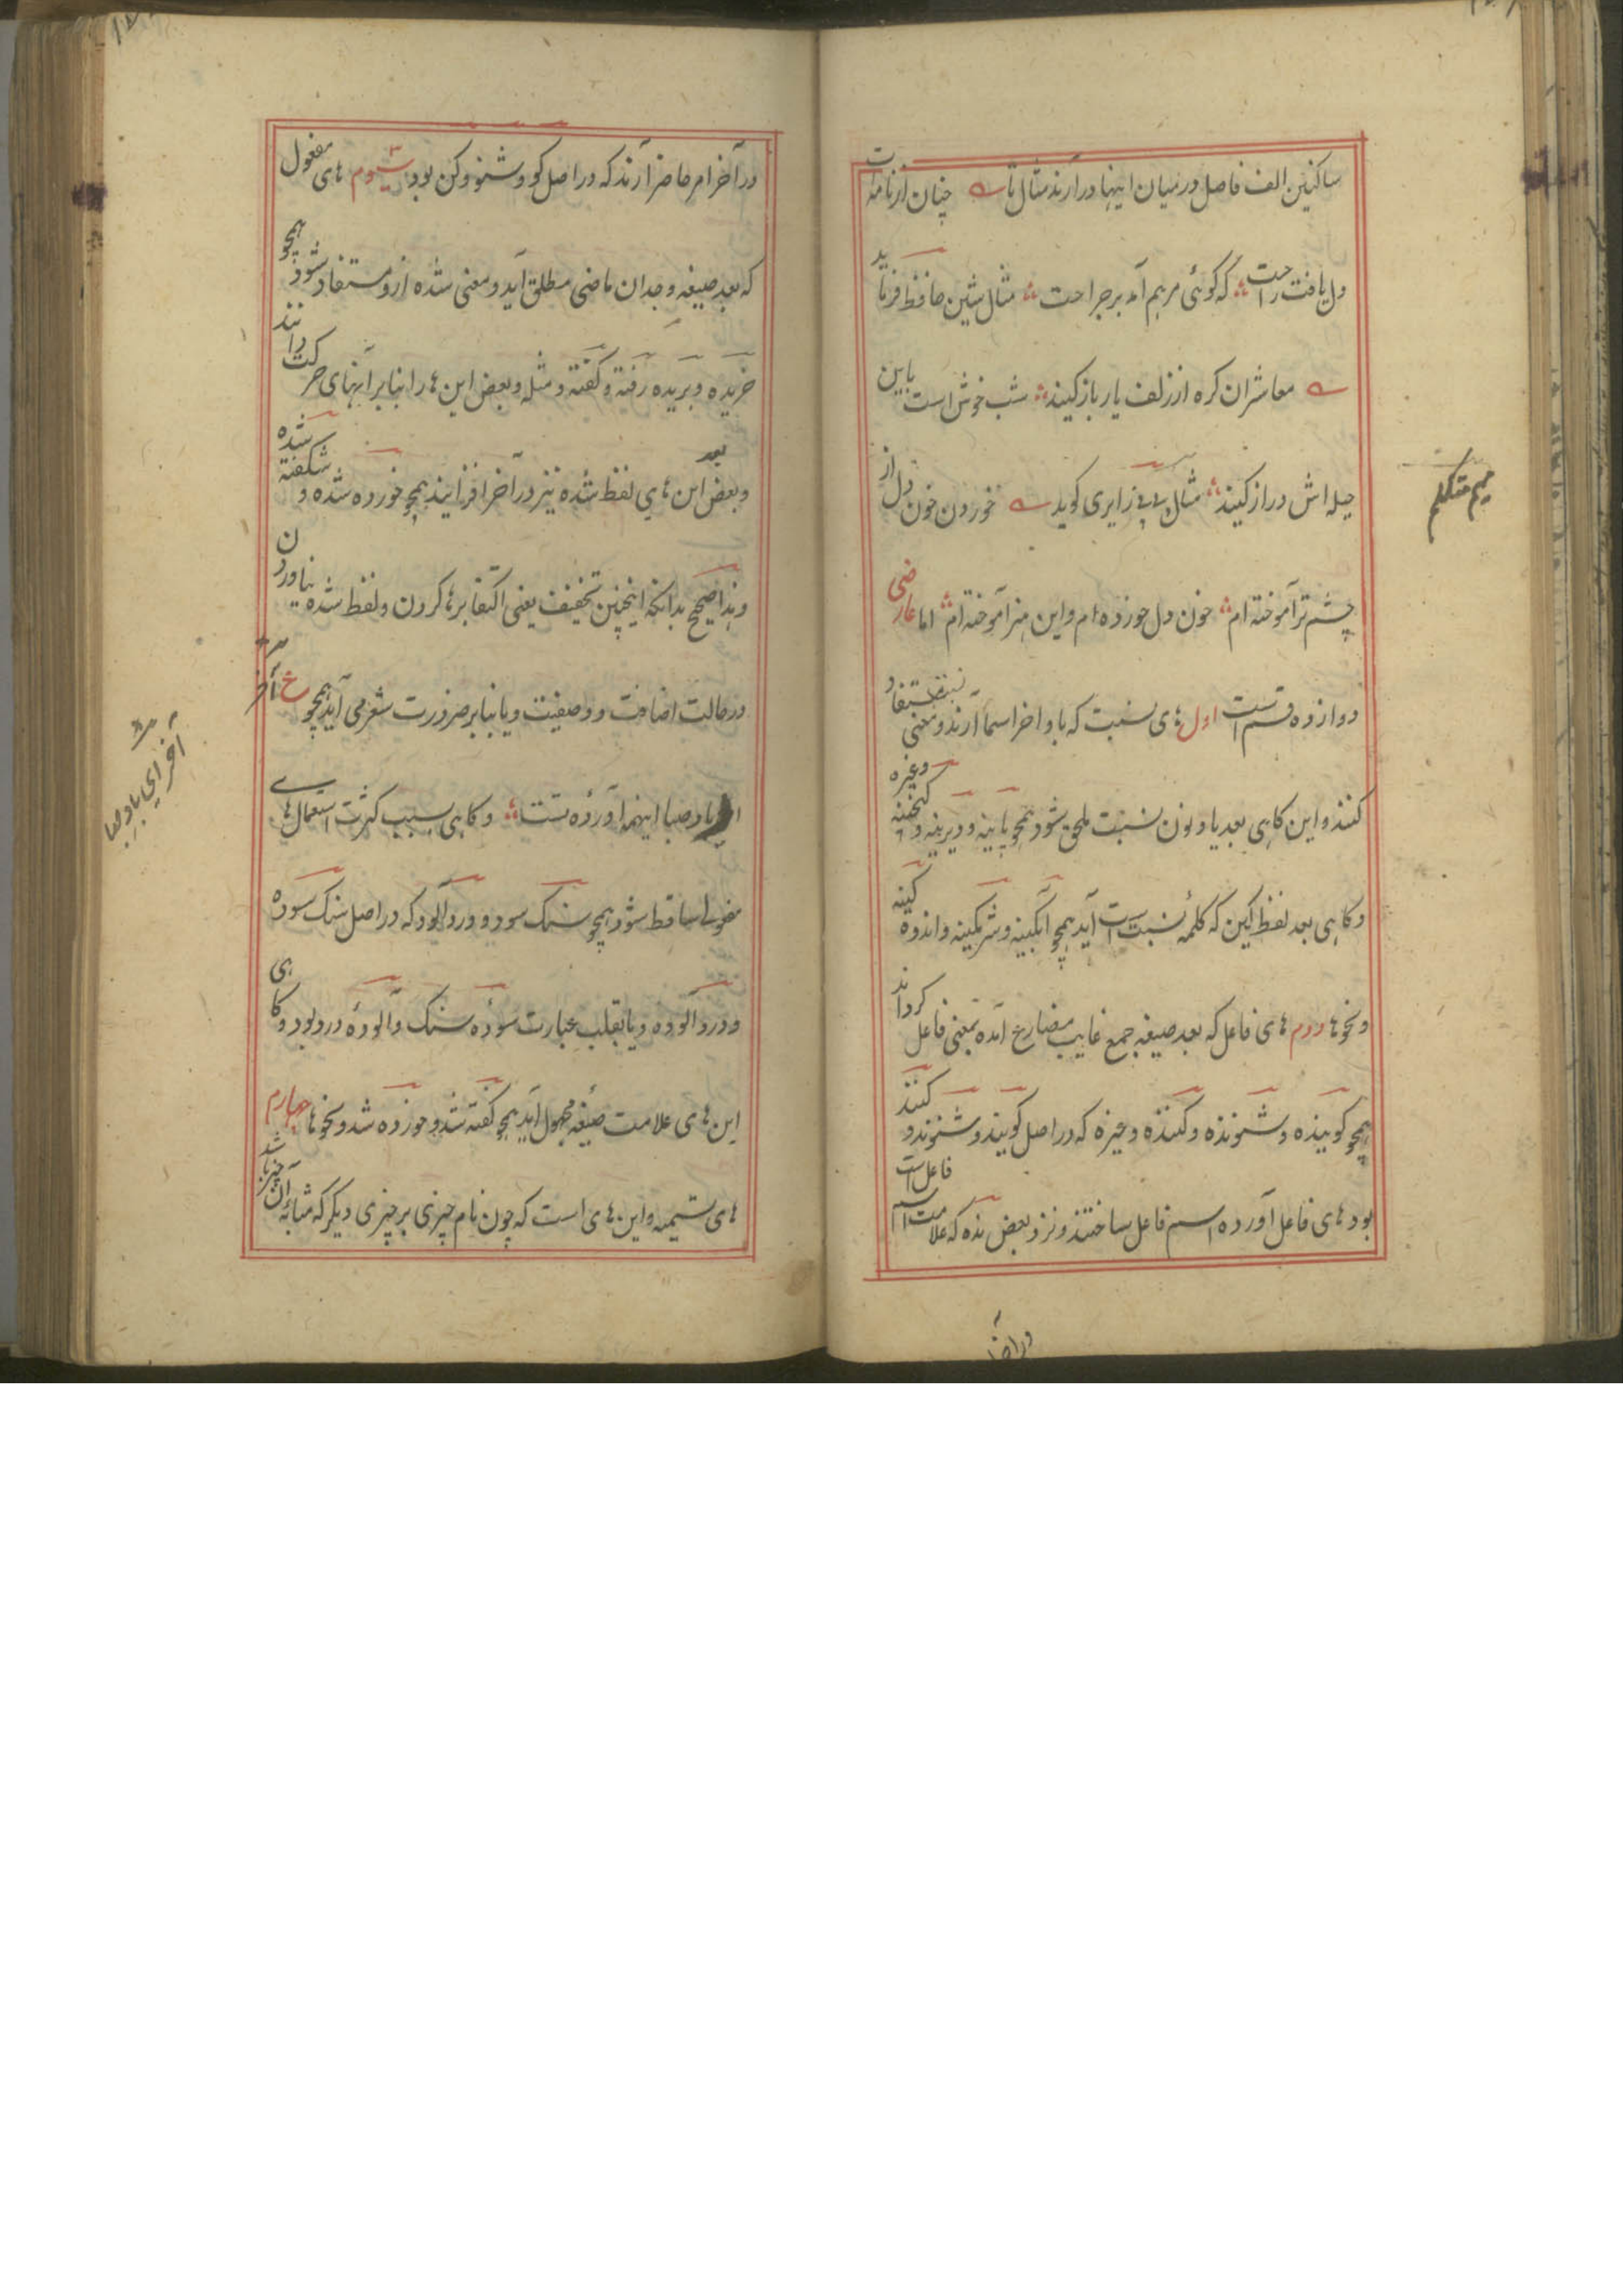 ساکنین الف فاصل درمیان اینها در آرند مثال تا ؎ چنان از نامه ات
دل یافت راحت ؞ که گوئی مرهم آمد بر جراحت ؞ مثال شین حافظ فرماید
؎ معاشران کره از زلف یار باز کنید ؞ شب خوش است باین
حیله اش دراز کنید ؞ مثال میم زایری کوید ؎ خوردن خون دل از
چشم تر آموخته ام ؞ خون دل خورده ام و این هنر آموخته ام ؞ اما عارضی
دوازده قسم است اول های نسبت که باواخر اسما آرند و معنی نسبت مستفاد
کنند و این کاهی بعد یا و نون نسبت ملحق شود همچو پایینه و دیرینه و کنجینه وغیره
و کاهی بعد لفظ کین که کلمه نسبت است آید همچو آبکینه و شرمکینه و اندوه کینه
و نحوها دوم های فاعل که بعد صیغه جمع غایب مضارع آمده بمعنی فاعل کرداند
همچو کوینده و شنونده و کننده وغیره که در اصل کویند و شنوند و کنند
بود های فاعل آورده اسم فاعل ساختند و نزد بعض نده که علامت اسم فاعل است
میم متکلم
در آخر
در آخر امر حاضر آرند که در اصل کو و شنو و کن بود سیوم های مفعول
که بعد صیغه وجدان ماضی مطلق آید و معنی شده ازو مستفاد شود همچو
خریده و بریده رفته و کفته و مثله و بعض این ها را بنابر آنهای حرکت دانند
و بعض بعد این های لفظ شده نیز در آخر افزایند همچو خورده شده و شکفته شده
و هذا صحیح بدانکه اینچنین تخفیف یعنی اکتفا برها کردن و لفظ شده نیاوردن
در حالت اضافت و وصفیت و یا بنابر ضرورت شعر می آید همچو ع آخر
ای باد صبا اینهمه آورده تست ؞ و کاهی بسبب کثرت استعمال های
مفعولی ساقط شود همچو سنک سود و درد آلود که در اصل سنک سوده
و درد آلوده و یا بقلب عبارت سوده سنک و آلوده درد بود و کاهی
این های علامت صیغه مجهول آید همچو کفته شد و خورده شد و نحوها چهارم
های تسمیه و این های است که چون نام چیزی بر چیزی دیکر که مشابه آن چیز باشد
آخر ای باد صبا